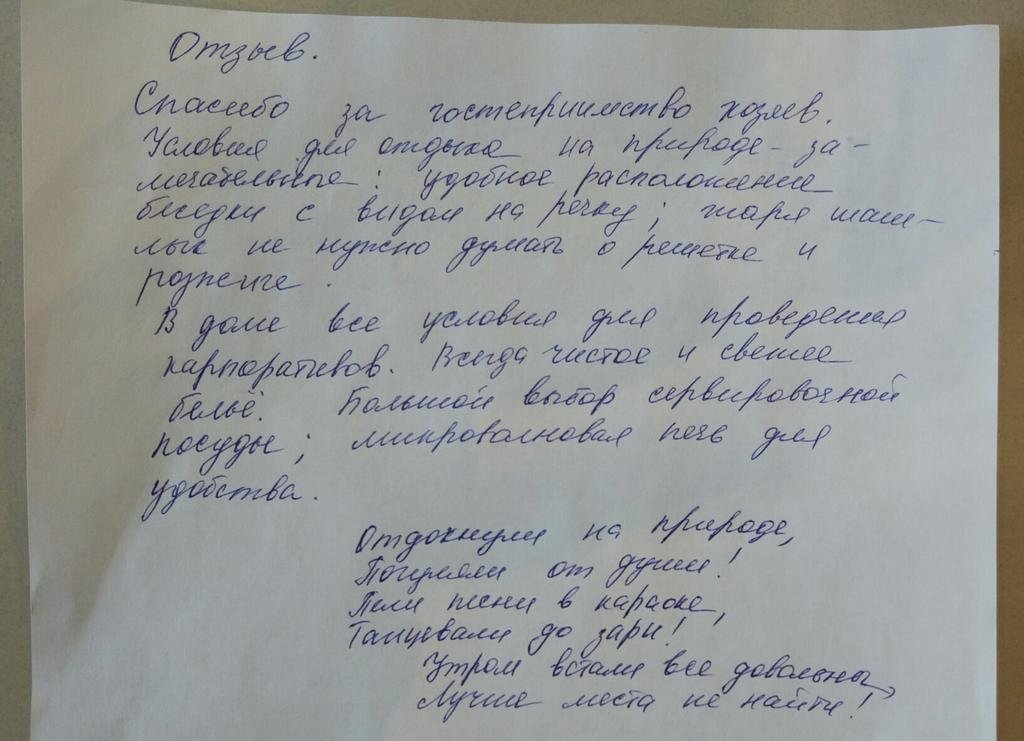 Отзыв.
Спасибо за гостеприимство хозяев.
Условия для отдыха на природе - за-
мечательные: удобное расположение
беседки с видом на речку; жаря шаш-
лык не нужно думать о решетке и
розжиге.
В доме все условия для проведения
карпоративов. Всегда чистое и свежее
бельё. Большой выбор сервировочной
посуды; микроволновая печь для
удобства.
Отдохнули на природе,
Погуляли от души!
Пели песни в караоке,
Танцевали до зари!
Утром встали все довольны,
Лучше места не найти!